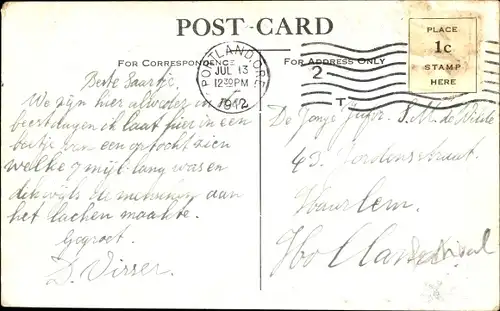 POST-CARD
FOR CORRESPONDENCE
FOR ADDRESS ONLY
PLACE
1c
STAMP
HERE
PORTLAND, ORE.
JUL 13
12 30 PM
1912
2
T
Beste Saartje.
We zijn hier alweder in
feestdagen ik laat hier in een
van een optocht zien
welke 7 mijl lang was en
dikwijls de menschen aan
het lachen maakte.
Gegroet.
D. Visser.
De Jonge Jufvr. S. M. de Wilde
42. Jordensstraat.
Haarlem.
Holland